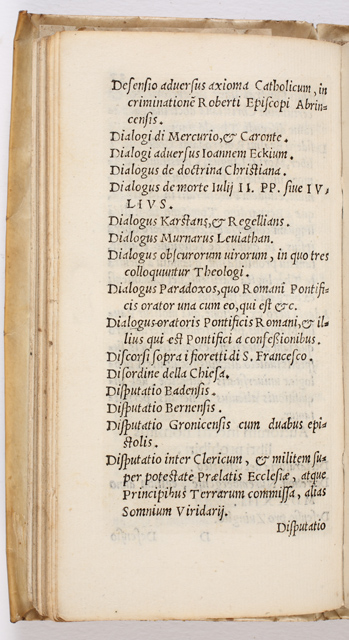 Defensio aduersus axioma Catholicum, in
criminationē Roberti Episcopi Abrin=
censis.
Dialogi di Mercurio, & Caronte.
Dialogi aduersus Ioannem Eckium.
Dialogus de doctrina Christiana.
Dialogus de morte Iulij II. PP. siue IV,
LIVS.
Dialogus Karstans, & Regellians.
Dialogus Murnarus Leuiathan.
Dialogus obscurorum uirorum, in quo tres
colloquuntur Theologi.
Dialogus Paradoxos, quo Romani Pontifi=
cis orator una cum eo, qui est &c.
Dialogus oratoris Pontificis Romani, & il=
lius qui est Pontifici a confeßionibus.
Discorsi sopra i fioretti di S. Francesco.
Disordine della Chiesa.
Disputatio Badensis.
Disputatio Bernensis.
Disputatio Gronicensis cum duabus epi=
stolis.
Disputatio inter Clericum, & militem su=
per potestate Prælatis Ecclesiæ, atque
Principibus Terrarum commissa, alias
Somnium Viridarij.
Disputatio